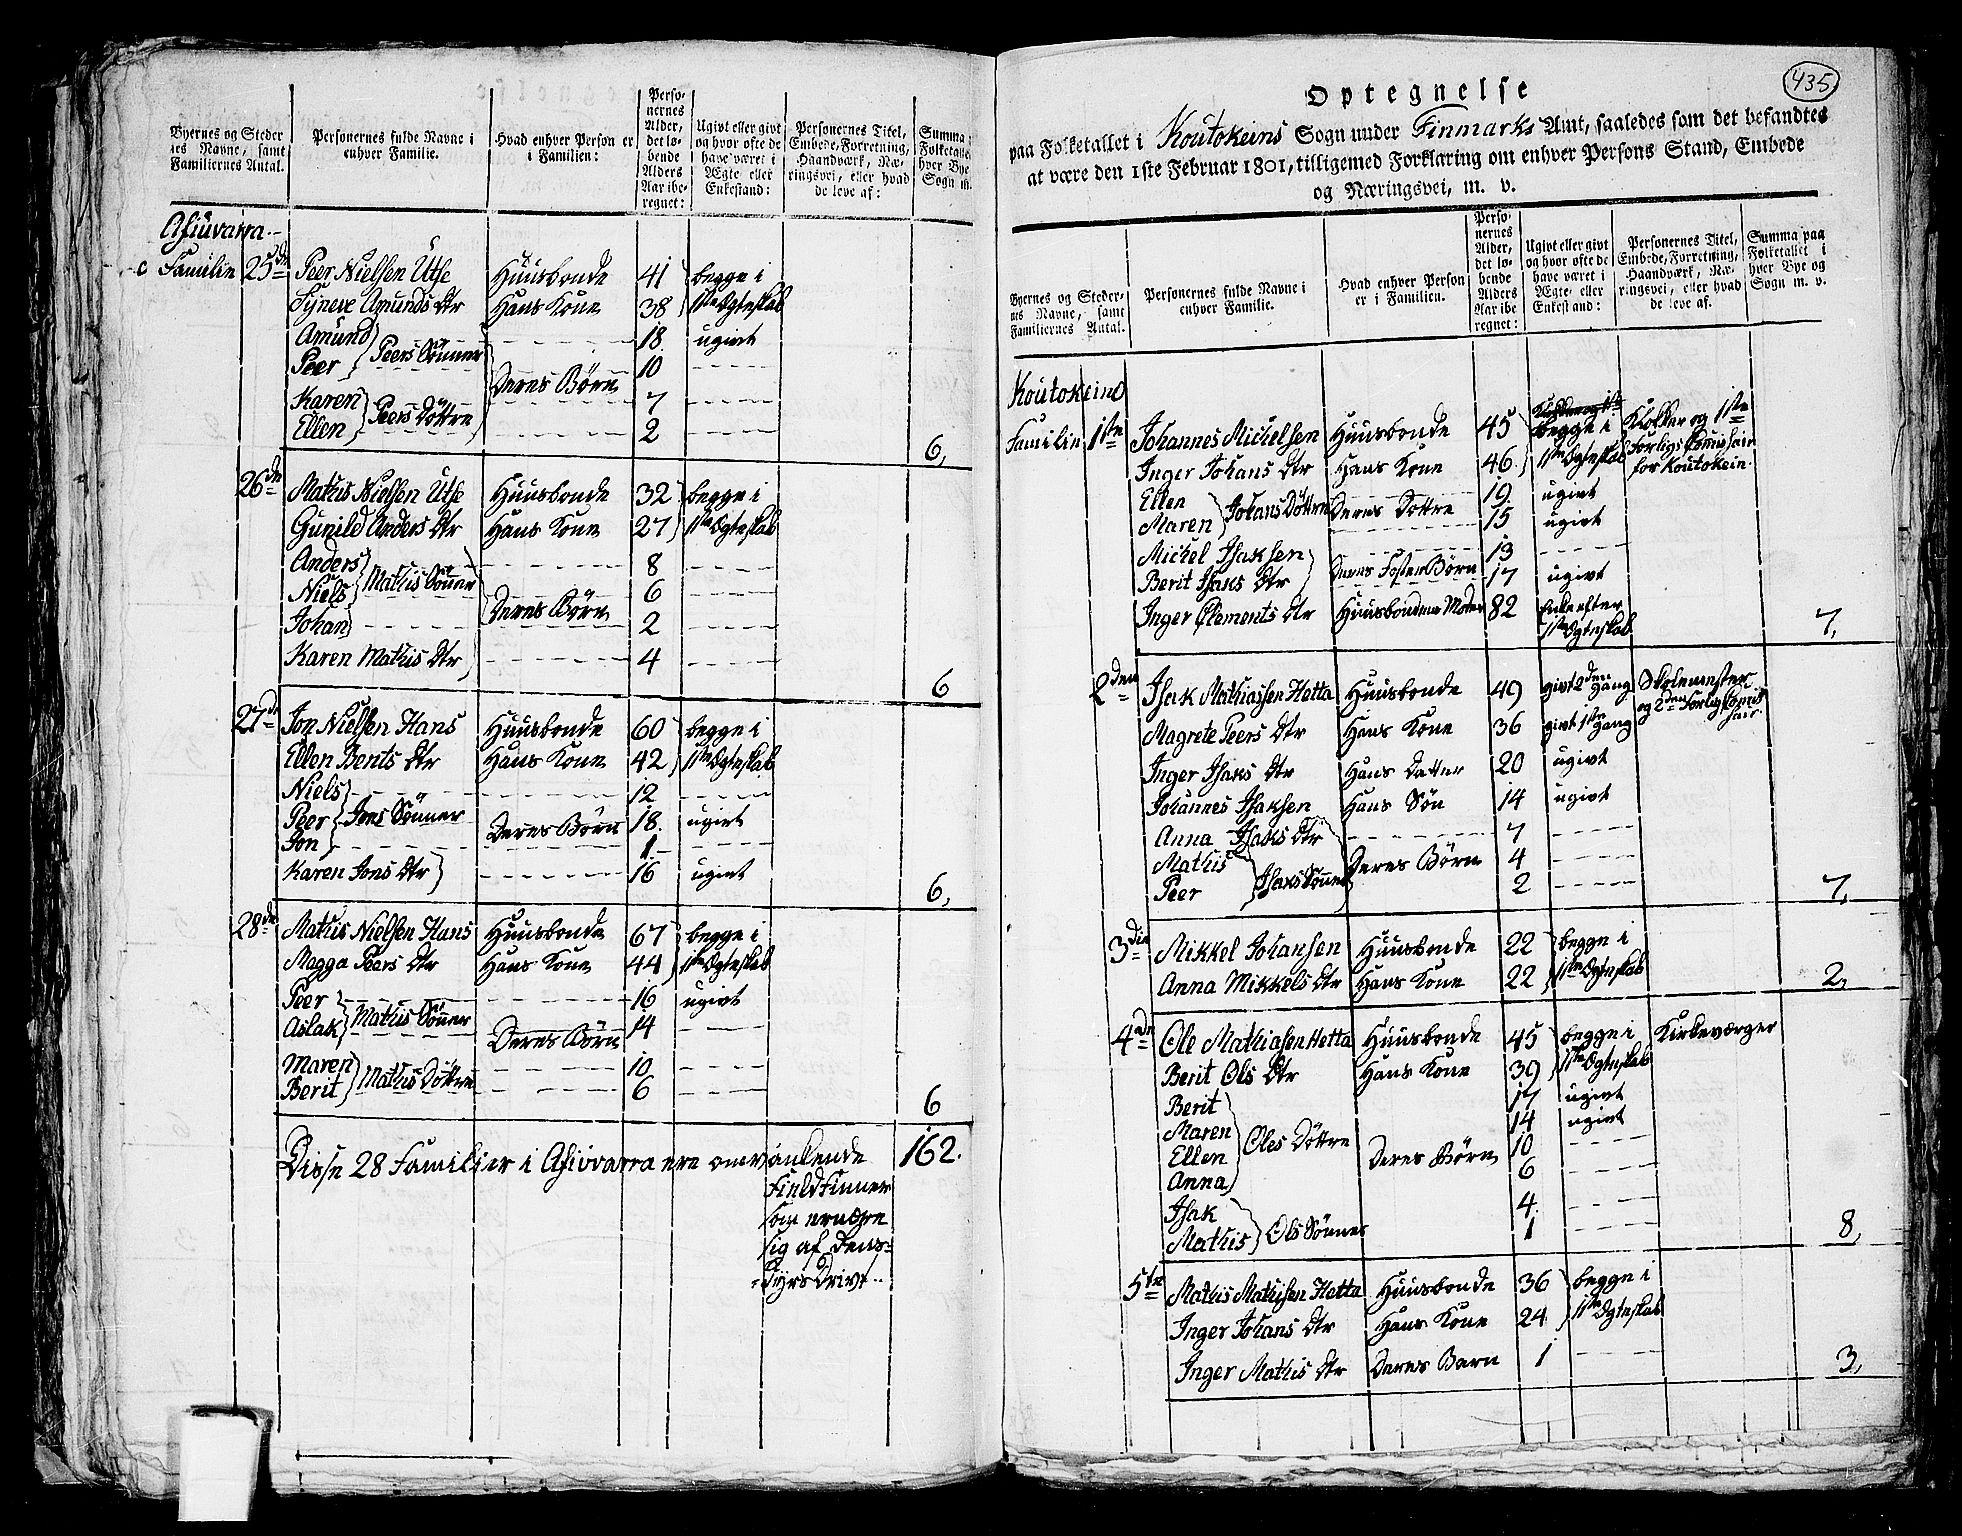 Byernes og Steder
nes Navne, samt
Familiernes Antal.
Personernes fulde Navne i
enhver Familie.
Hvad enhver Person er
i Familien:
Perso-
nernes
Alder,
det lø-
bende
Alders
Aar ibe-
regnet:
Ugivt eller givt
og hvor ofte de
have været i
Ægte eller
Enkestand:
Personernes Titel,
Embede, Forretning,
Haandværk, Næ-
ringsvei, eller hvad
de leve af:
Summa
Folketallet
hver Bye
Sogn m.
Afiuvarra
Familie 25de Peer Nielsen Utse Huusbonde 41 begge i
Syneve Amunds Dtr Hans Kone 38 1ste Ægteskab
Amund 18 ugivt
Peer Peers Sønner 10
Deres Børn
Karen 7
Ellen Peers Døttre 2
6,
26de Mathis Nielsen Utse Huusbonde 32 begge i
Gunild Anders Dtr Hans Kone 27 1ste Ægteskab
Anders 8
Niels Mathis Sønner 6
Deres Børn
Johan 2
Karen Mathis Dtr 4
6
27de Jon Nielsen Hans Huusbonde 60 begge i
Ellen Bents Dtr Hans Kone 42 1ste Ægteskab
Niels 12
Peer Jons Sønner Deres Børn 18 ugivt
Jon 1
Karen Jons Dtr 16 ugivt
6,
28de Mathis Nielsen Hans Huusbonde 67 begge i
Magga Peers Dtr Hans Kone 44 1ste Ægteskab
Peer 16 ugivt
Aslak Mathis Sønner 14
Deres Børn
Maren 10
Berit Mathis Døttre 6
6
Disse 28 Familier i Afiuvarra ere omvankende 162.
Field Finner
som ernære
sig af Deres
Dyrs Drivt
435
Optegnelse
paa Folketallet i Koutokeins Sogn under Finmarks Amt, saaledes som det befandtes
at være den 1ste Februar 1801, tilligemed Forklaring om enhver Persons Stand, Embede
og Næringsvei, m. v.
Byernes og Steder-
nes Navne, samt
Familiernes Antal.
Personernes fulde Navne i
enhver Familie.
Hvad enhver Person
er i Familien.
Perso-
nernes
Alder,
det lø-
bende
Alders
Aar ibe-
regnet:
Ugivt eller givt
og hvor ofte de
have været i
Ægte- eller
Enkestand:
Personernes Titel,
Embede, Forretning,
Haandværk, Næ-
ringsvei, eller hvad
de leve af.
Summa paa
Folketallet i
hver Bye og
Sogn m. v.
Koutokeino
Familie 1ste Johannes Michelsen Huusbonde 45 begge i Klokker og 1ste
Inger Johans Dtr Hans Kone 46 1ste Ægteskab Forligs Commissair
for Koutokein.
Ellen 19 ugivt
Maren Johans Døttre Deres Døttre 15 ugivt
Michel Isaksen 13
Berit Isaks Dtr Deres Foster Børn 17 ugivt
Inger Clements Dtr Huusbondens Moder 82 Enke efter
1ste Ægteskab
7,
2den Isak Mathiassen Hetta Huusbonde 49 givt 2den Gang Skolemester
og 2den Forligs Commis
sair.
Magrete Peers Dtr Hans Kone 36 givt 1ste Gang
Inger Isaks Dtr Hans Datter 20 ugivt
Johannes Isaksen Hans Søn 14 ugivt
Anna Isaks Dtr 7
Mathis Deres Børn 4
Peer Isaks Sønner 2
7,
3die Mikkel Johansen Huusbonde 22 begge i
Anna Mikkels Dtr Hans Kone 22 1ste Ægteskab
2,
4de Ole Mathiasen Hetta Huusbonde 45 begge i Kirkeværger
Berit Ols Dtr Hans Kone 39 1ste Ægteskab
Berit 17 ugivt
Maren 14 ugivt
Ellen Oles Døttre Deres Børn 10
Anna 6
Isak 4
Mathis Ols Sønner 1
8,
5te Mathis Mathisen Hetta Huusbonde 36 begge i
Inger Johans Dtr Hans Kone 24 1ste Ægteskab
Inger Mathis Dtr Deres Barn 1
3,